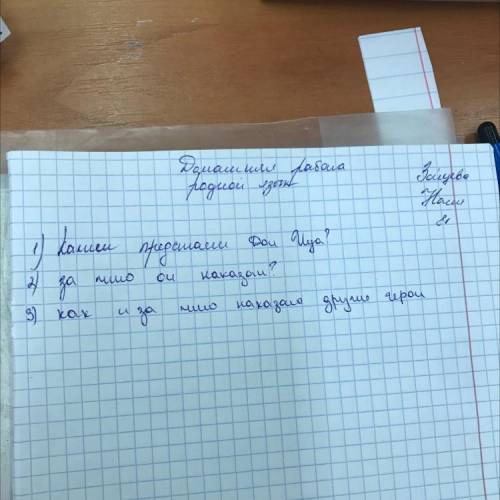 Домашняя работа
родной язык
Зайцева
Настя
1) Каким представлен Дон Жуан?
2) за что он наказан?
3) как и за что наказаны другие герои